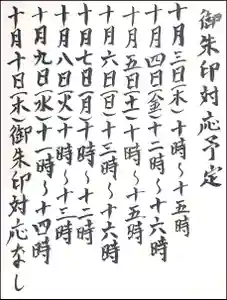 御朱印対応予定
十月三日(木)十時～十五時
十月四日(金)十二時～十六時
十月五日(土)十時～十五時
十月六日(日)十三時～十六時
十月七日(月)十時～十二時
十月八日(火)十時～十三時
十月九日(水)十一時～十四時
十月十日(木)御朱印対応なし